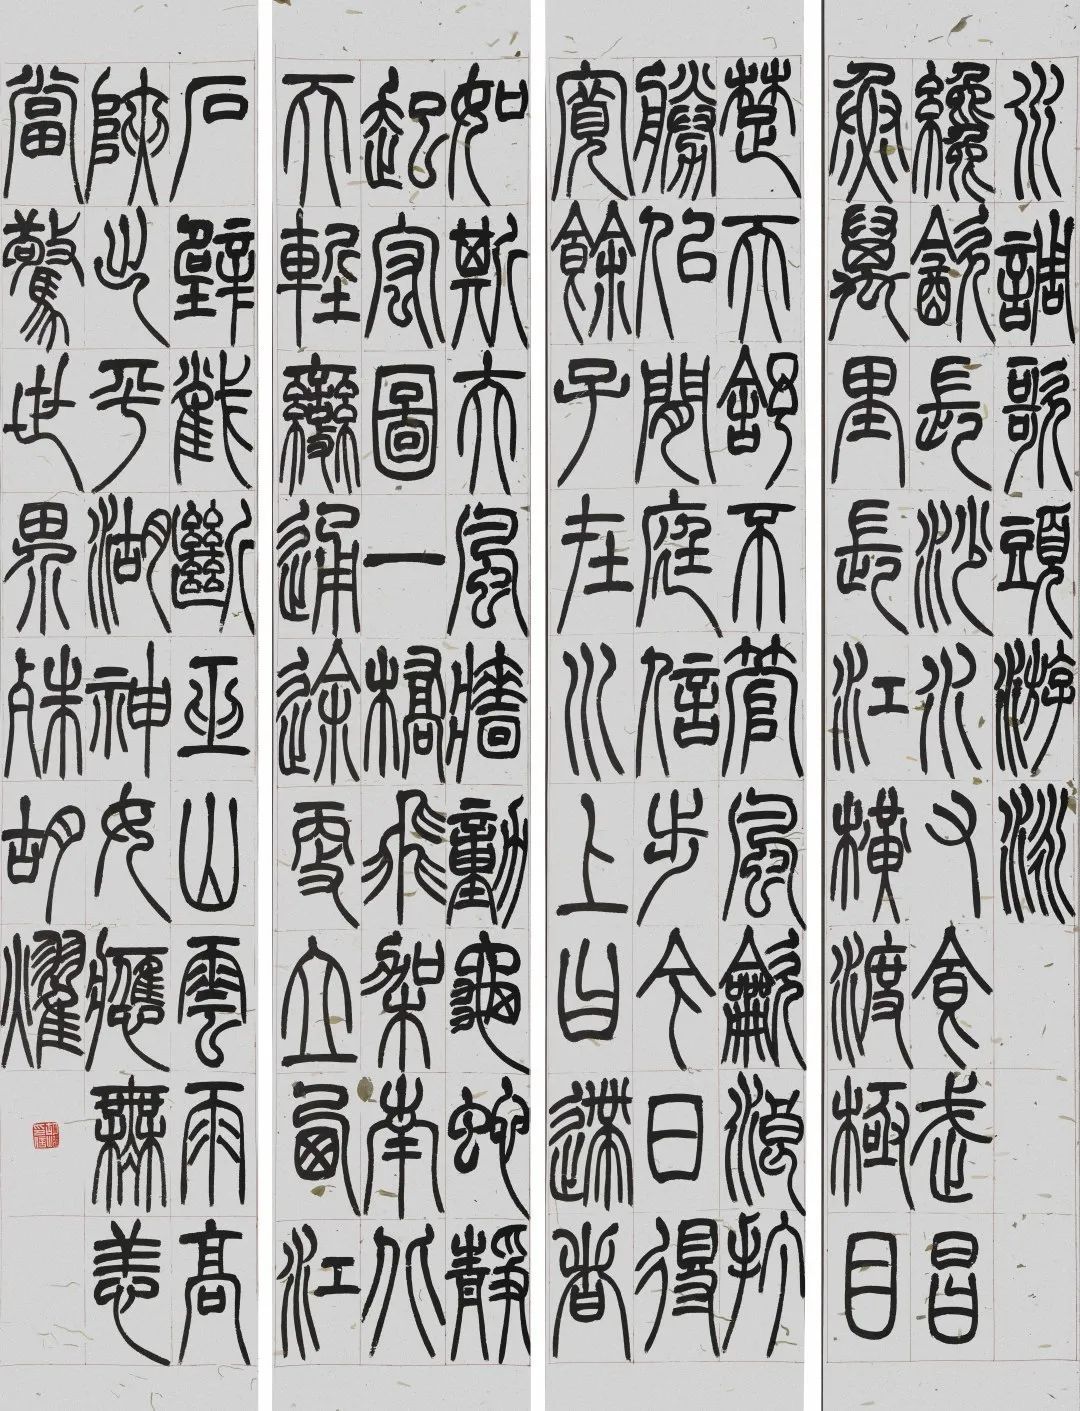 水調歌頭游泳
纔飲長沙水又食武昌
魚萬里長江橫渡極目
楚天舒不管風吹浪打
勝似閒庭信步今日得
寬餘子在川上曰逝者
如斯夫風檣動龜蛇靜
起宏圖一橋飛架南北
天塹變通途更立西江
石壁截斷巫山雲雨高
峽出平湖神女應無恙
當驚世界殊胡燿